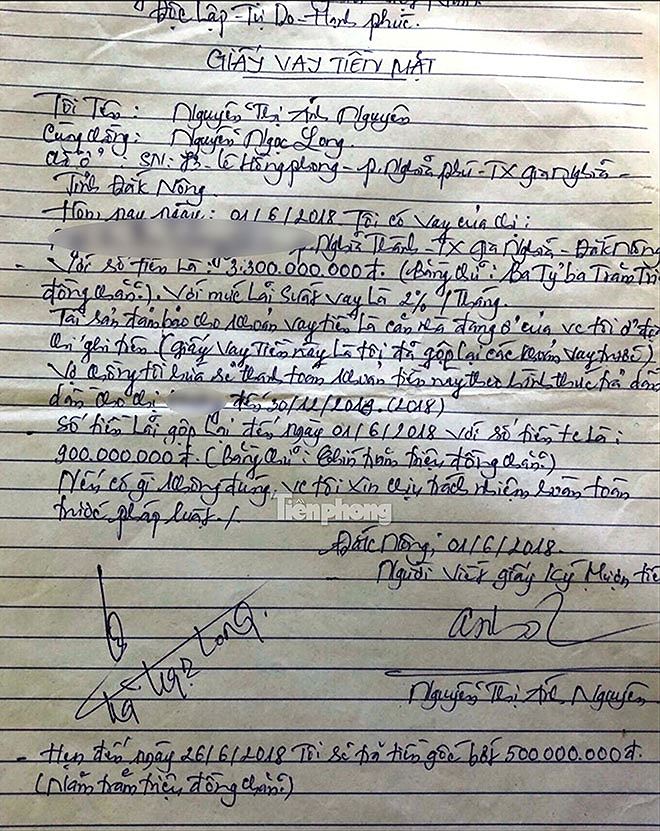 Độc Lập - Tự Do - Hạnh phúc.
GIẤY VAY TIỀN MẶT
Tôi Tên : Nguyễn Thị Ánh Nguyên
Cùng chồng : Nguyễn Ngọc Long.
chỗ ở : SN: Lê Hồng phong - p. Nghĩa phú - TX gia Nghĩa -
Tỉnh Đắk Nông.
Hôm nay ngày : 01/6/2018 Tôi có vay của chị :
p. Nghĩa Thành - TX Gia Nghĩa - Đắk Nông
- Với số tiền Là : 3.300.000.000đ. (Bằng chữ : Ba Tỷ ba Trăm Tri
đồng chẵn). Với mức Lãi Suất vay Là 2% /Tháng.
Tài sản đảm bảo cho khoản vay tiền là căn nhà đang ở của vc tôi ở
chỉ ghi trên (giấy vay Tiền này Là tôi đã gộp lại các khoản vay trước)
Vợ chồng tôi hứa sẽ thanh toán khoản tiền này theo hình thức trả dần
dần cho chị đến 30/12/2018. (2018)
- Số tiền Lãi gộp Lại đến ngày 01/6/2018 với số tiền Là :
900.000.000đ. (Bằng chữ : Chín trăm triệu đồng chẵn)
Nếu có gì không đúng, vc tôi xin chịu trách nhiệm hoàn toàn
trước pháp luật ./.
Tiênphong
Đắk Nông, 01/6/2018.
Người viết giấy Ký Mượn tiề
Ngọc Long.
Nguyễn Thị Ánh Nguyên
- Hẹn đến ngày 26/6/2018 Tôi sẽ trả tiền gốc bớt 500.000.000đ.
(Năm trăm triệu đồng chẵn)